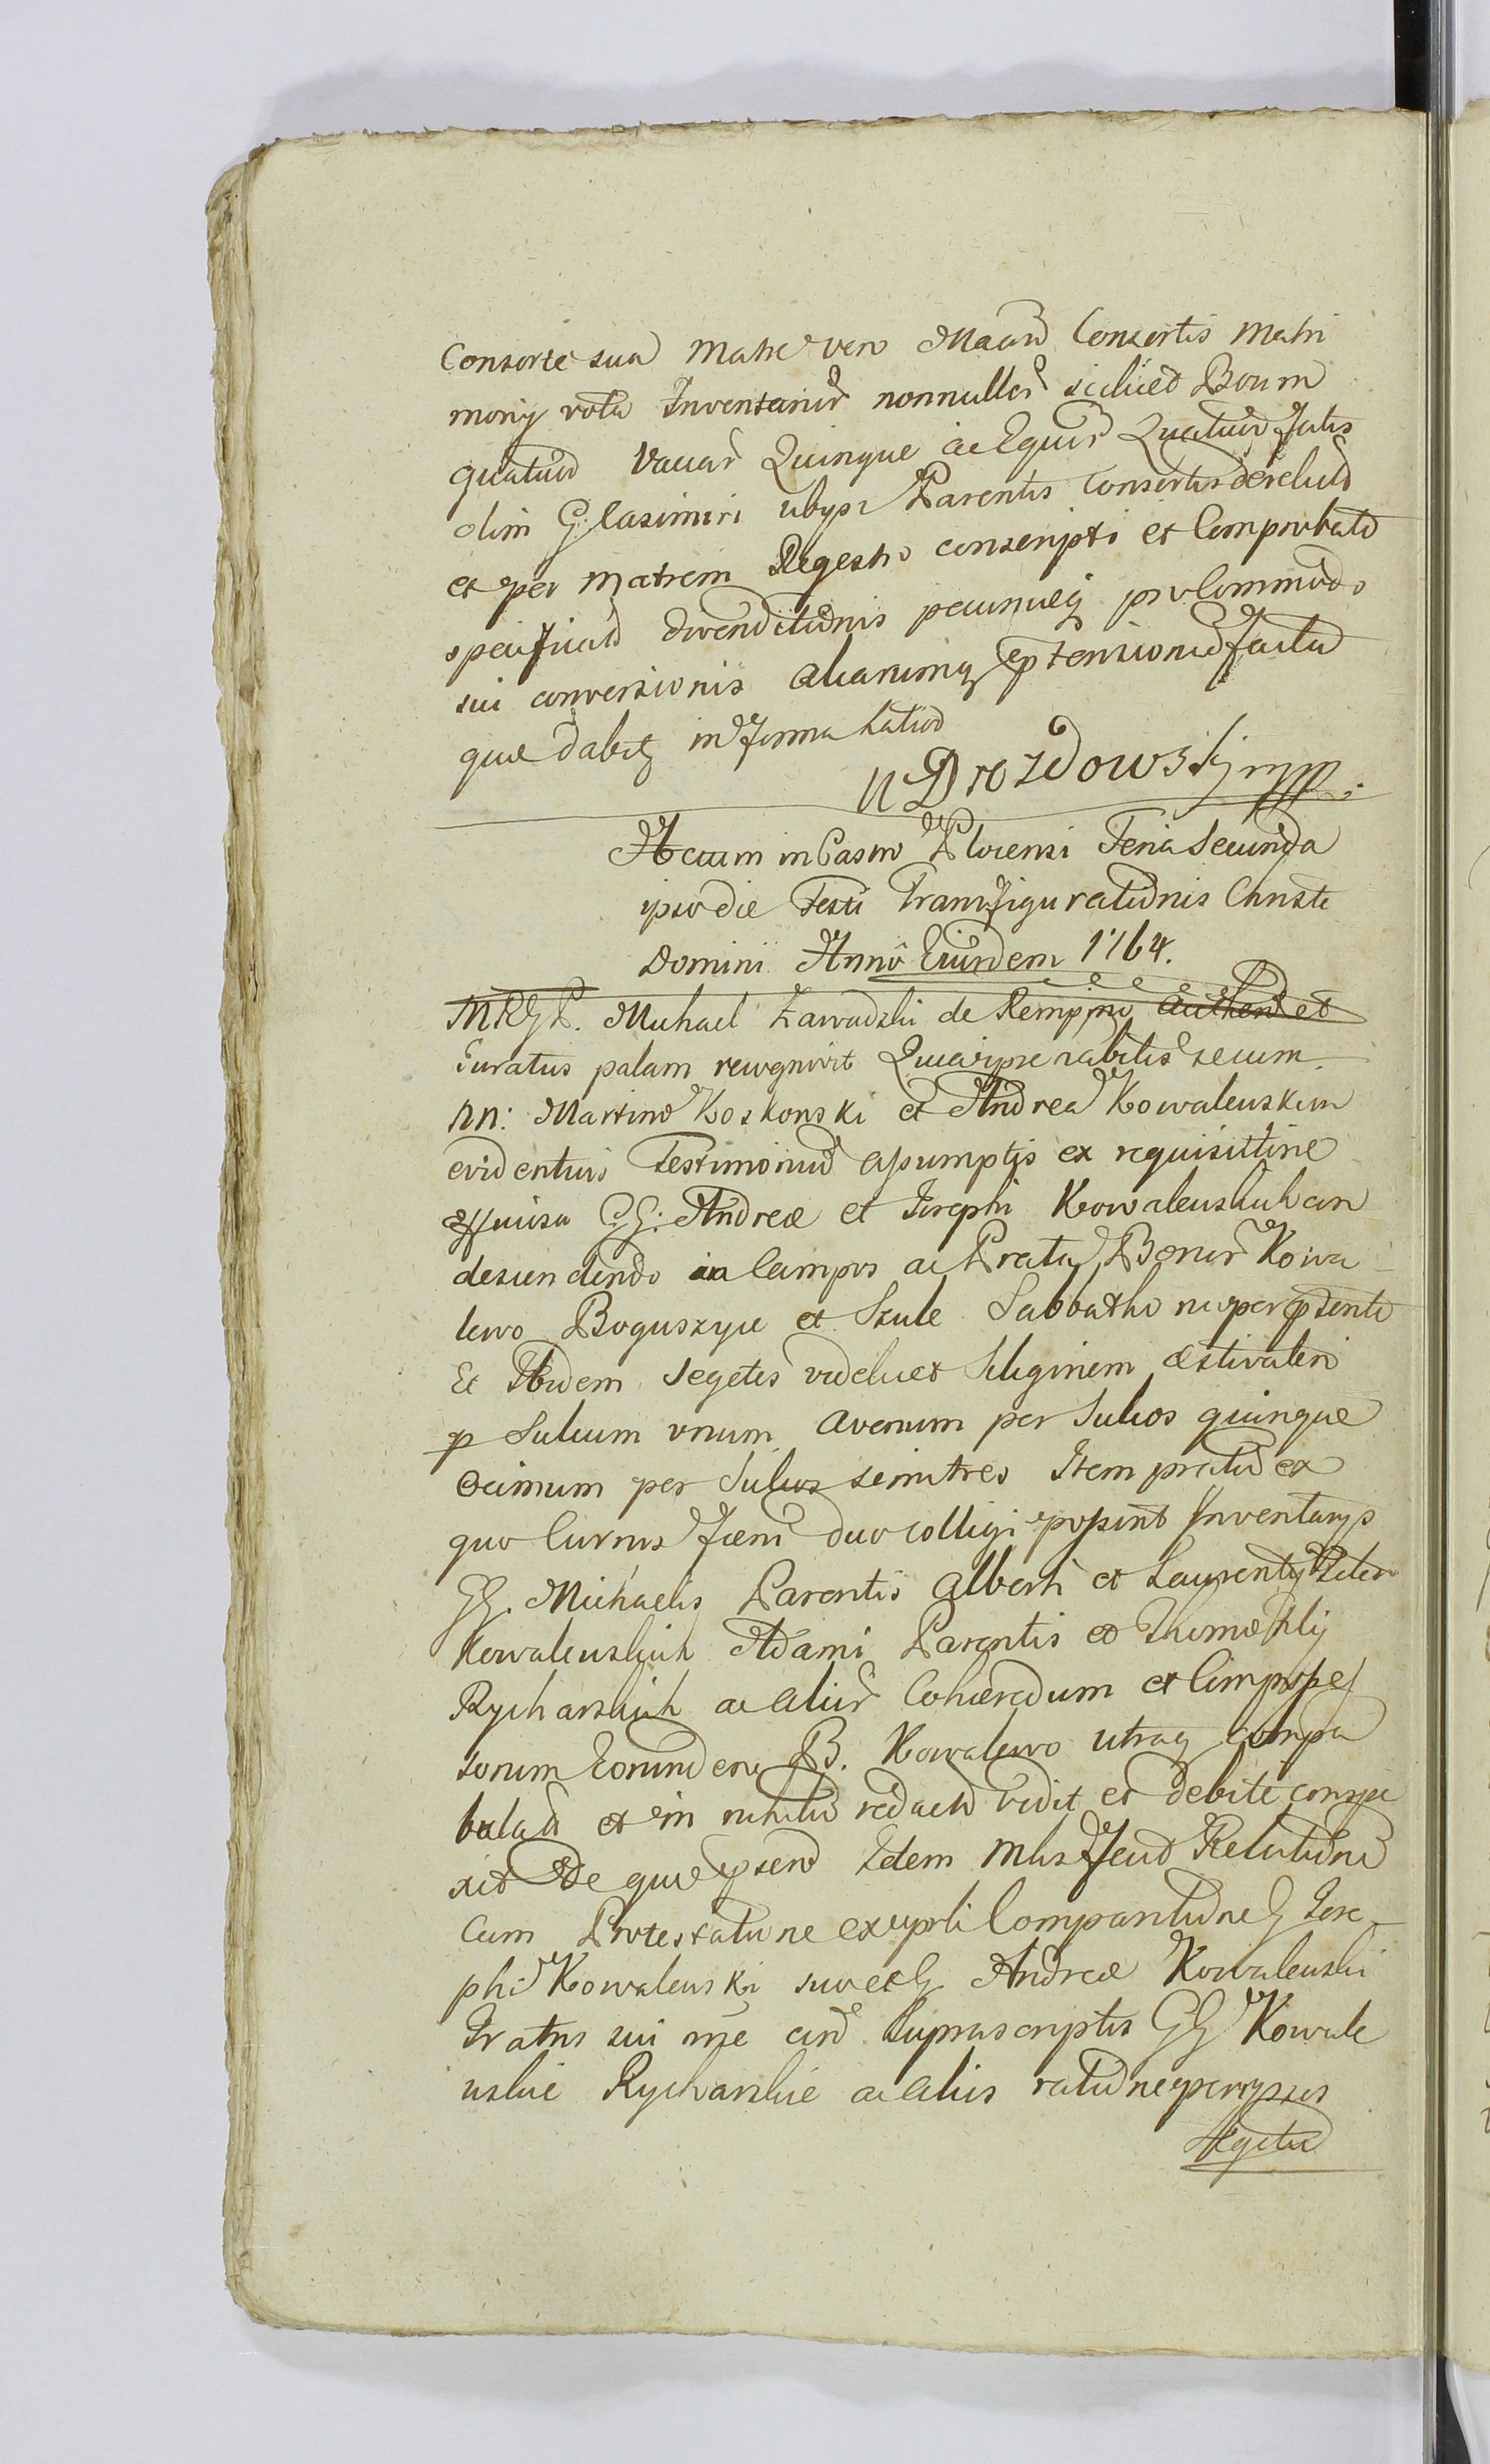 Consorte sua Matre vero Maari Consortis Matri
mony vota Inventarior nonnullor scilicet Boum
quatuor Vacar Quinque ac Equor Quatuor fatis
olim G. Casimiri Parentis Consortis derelict
et per Matrem Regestro conscripti et Comprobat
specificat divenditionis pecuniaeq pro Commodo
sui conversionis aliarumq facta
quae dabitq in forma latior
N Drozdowskj mpp.
Actum in Castro Plocensi Feria Secunda
ipso die Festi Transfigurationis Christi
Domini Anno Eiusdem 1764.
MRGP. Michael Zawadzki de Kempino Authent et
Iuratus palam recognovit Quia ipse nobilis secum
nn: Martino Koskonski et Andrea Kowalewskim
evidentioris Testimonii assumptis ex requisittine
officiosa GG: Andreae et Josephi Kowalewskich con
descendendo in Campos ac Prata Bonor Kowa
lewo Boguszyce et Szule Sabbatho nuper
Et Ibidem segetes videlicet Siliginem aestivalem
p Sulcum unum Avenam per Sulcos quinque
Ocimum per Sulcos semitres Item pratu ex
quo Currus Faeni duo colligi possint Inventarys
GG. Michaelis Parentis Alberti et Laurenty
Kowalewskich Adami Parentis et Thomae Filij
Rycharskich ac Alior Cohaeredum et Compos
sorum Eorundem B. Kowalewo utraq compa
bulata et in nihilu redacta vidit et debite conspe
xit De quo Idem Mlis fecit Relationem
Cum Protestatione ex Comparitione G Jose
phi Kowalewski suo et G Andreae Kowalewski
Fratris sui nne con Suprascriptos GG Kowale
wskie Rycharskie ac Alios ratione
segetu